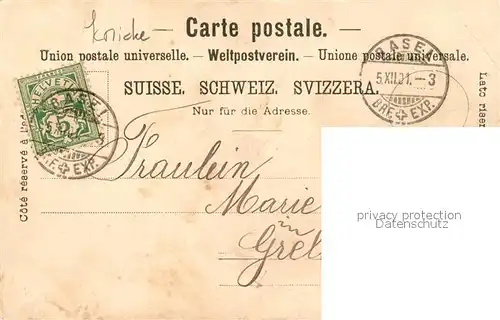 — Carte postale. —
Union postale universelle. — Weltpostverein. — Unione postale universale.
SUISSE. SCHWEIZ. SVIZZERA.
Nur für die Adresse.
BASEL
5.XII.01. — 3
BRF. EXP.
HELVETIA
5
EXP.
Côté réservé à l'ad
Lato riser
Fräulein
Marie
in
Grel
privacy protection
Datenschutz